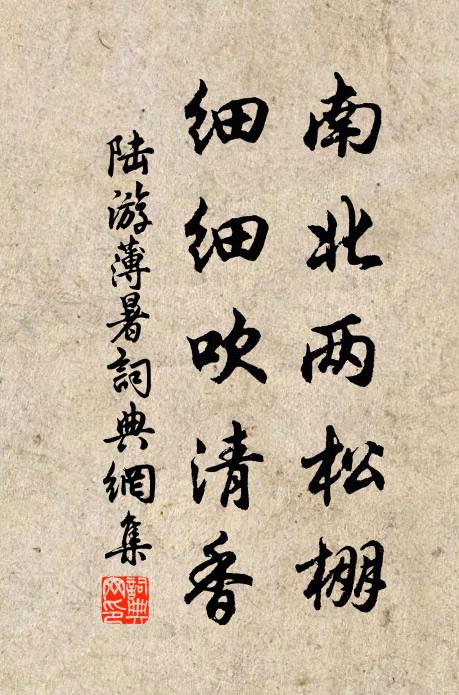 南北两松棚
细细吹清香
陆游薄暑詞典網集
詞典网印